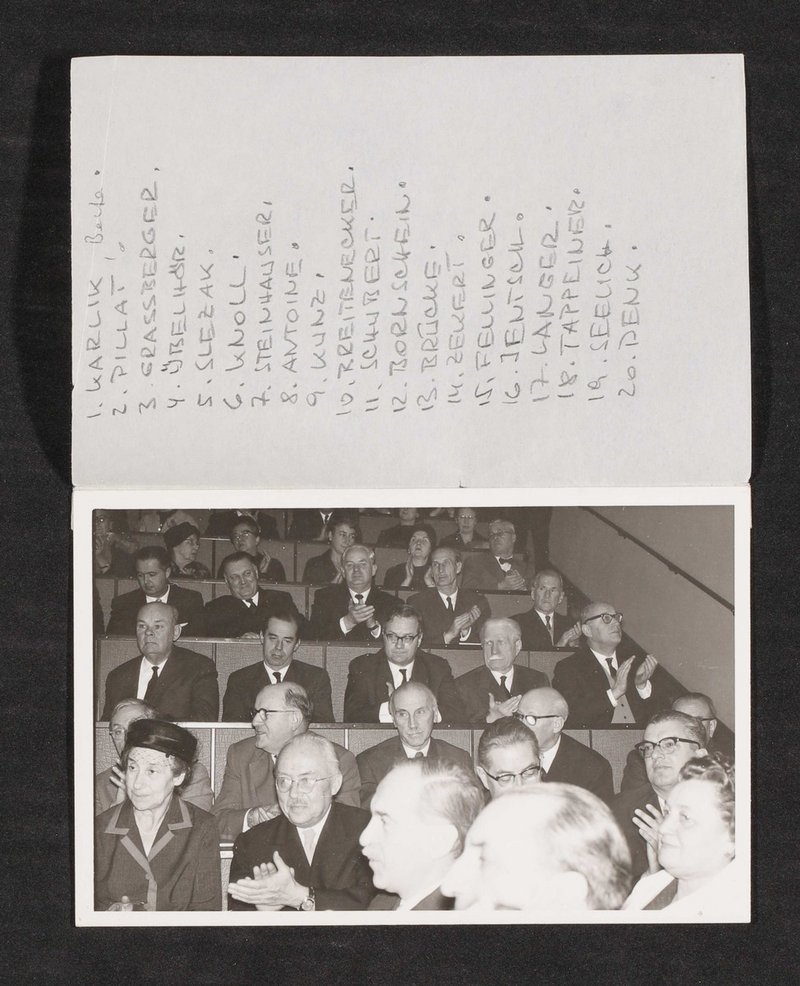 1. KARLIK Berta.
2. PILLAT.
3 GRASSBERGER.
4. ÜBELHÖR.
5. SLEZAK.
6. KNOLL.
7. STEINHAUSER.
8. ANTOINE.
9. KUNZ.
10. KREITENECKER.
11. SCHUBERT.
12. BORNSCHEIN.
13. BRÜCKE.
14. ZEKERT.
15. FELLINGER.
16. JENTSCH.
17. LANGER.
18. TAPPEINER.
19. SEELICH.
20. DENK.